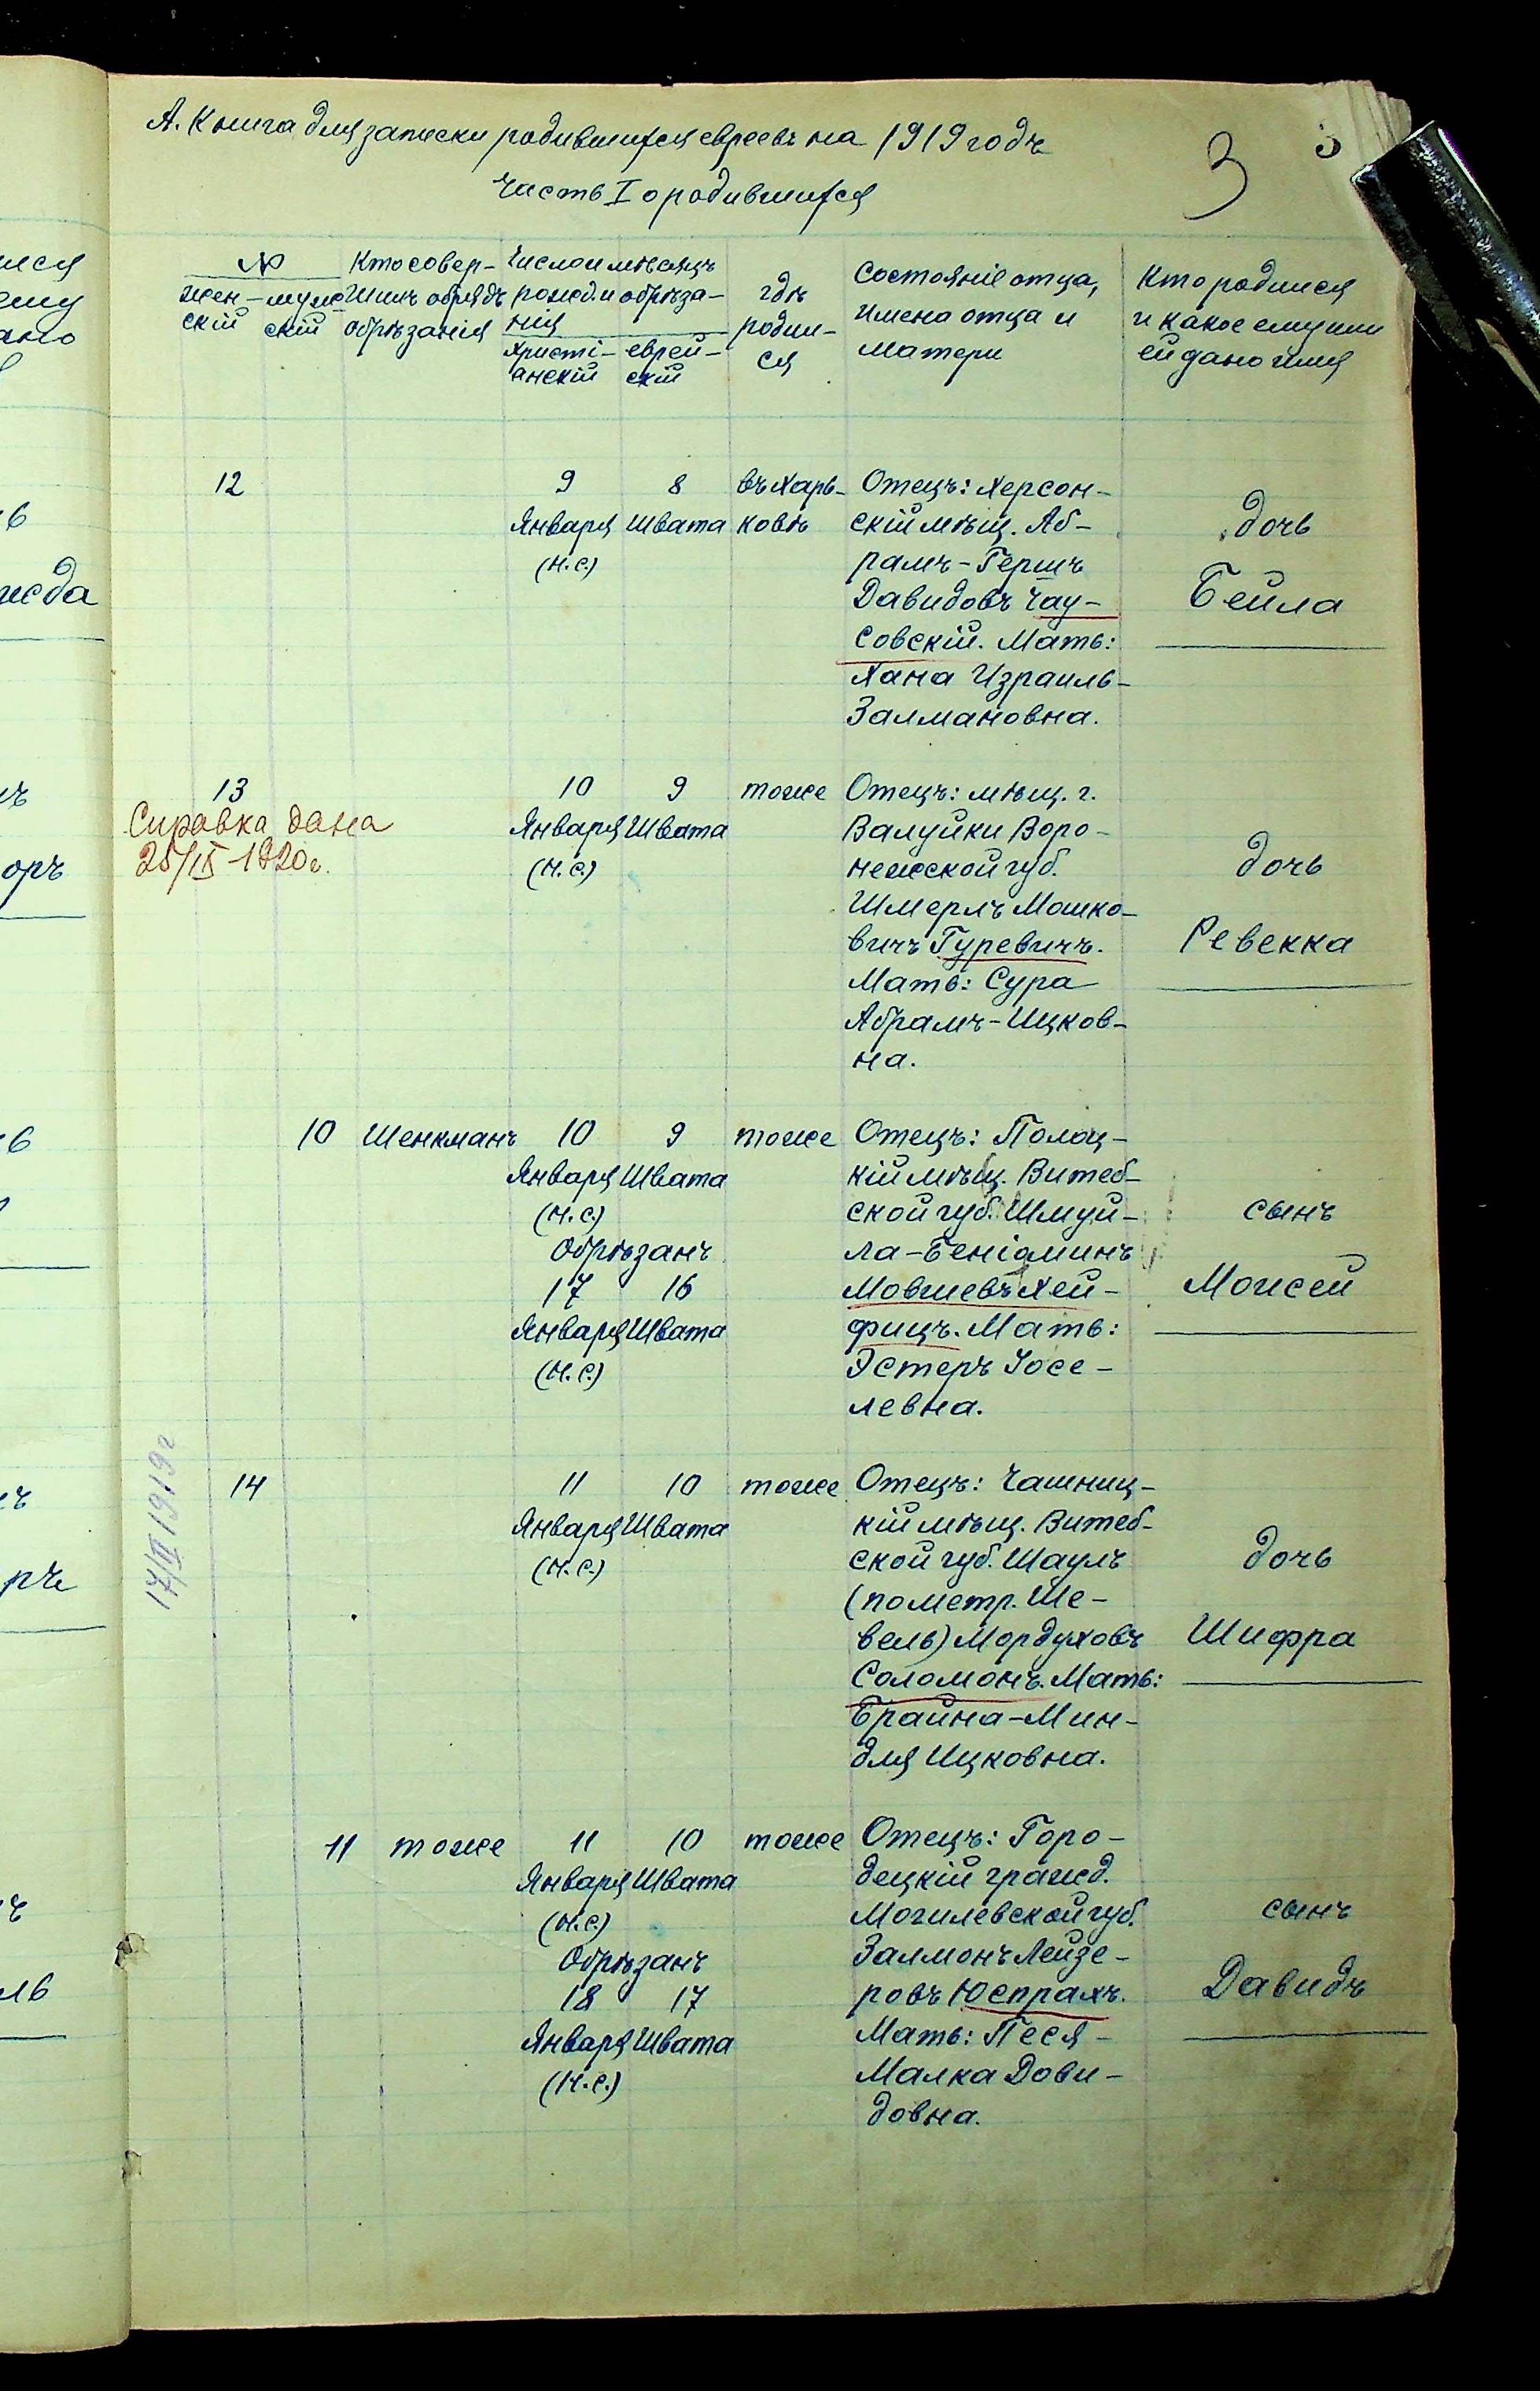 А. Книга для записки родившихся евреевъ на 1919 годъ
3
3
Часть I о родившихся
№
жен-
скій
муж
скій
Кто совер-
шилъ обрядъ
обрѣзанія
Число и мѣсяцъ
рожд. и обрѣза-
нія
христі-
анскій
еврей-
скій
гдѣ
родил-
ся
Состояніе отца,
имена отца и
матери
Кто родился
и какое ему или
ей дано имя
12
9
Января
(н.с.)
8
Швата
въ Харь-
ковѣ
Отецъ: Херсон-
скій мѣщ. Аб-
рамъ-Гершъ
Давидовъ Чау-
совскій. Мать:
Хана Израиль-
Залмановна.
дочь
Бейла
13
Справка дана
25/IX-1920г.
10
Января
(н.с.)
9
Швата
тоже
Отецъ: мѣщ. г.
Валуйки Воро-
нежской губ.
Шмерлъ Мошко-
вичъ Гуревичъ.
Мать: Сура
Абрамъ-Ицков-
на.
дочь
Ревекка
10
Шенкманъ
10
Января
(н.с.)
9
Швата
Обрѣзанъ
17
Января
(н.с.)
16
Швата
тоже
Отецъ: Полоц-
кій мѣщ. Витеб-
ской губ. Шмуй-
ла-Беніаминъ
Мовшевъ Хей-
фицъ. Мать:
Эстеръ Йосе-
левна.
сынъ
Моисей
17/II 1919 г
14
11
Января
(н.с.)
10
Швата
тоже
Отецъ: Чашниц-
кій мѣщ. Витеб-
ской губ. Шаулъ
(по метр. Ше-
вель) Мордуховъ
Соломонъ. Мать:
Брайна-Мин-
для Ицковна.
дочь
Шифра
11
тоже
11
Января
(н.с.)
10
Швата
Обрѣзанъ
18
Января
(н.с.)
17
Швата
тоже
Отецъ: Горо-
децкій гражд.
Могилевской губ.
Залмонъ Лейзе-
ровъ Юспрахъ.
Мать: Песя-
Малка Дови-
довна.
сынъ
Давидъ